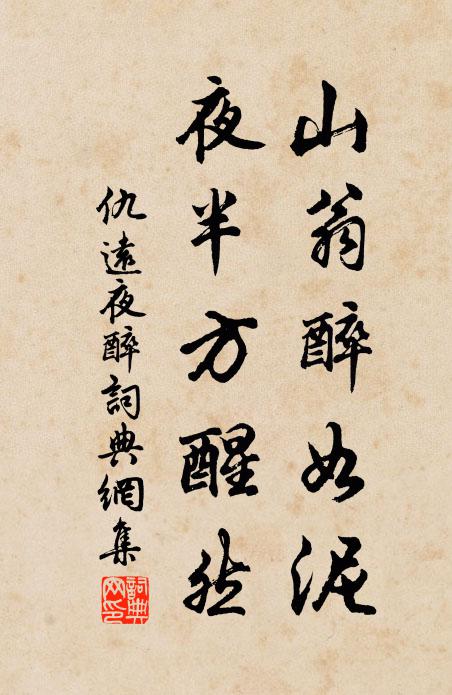 山翁醉如泥
夜半方醒然
仇遠夜醉詞典網集
詞典
网印